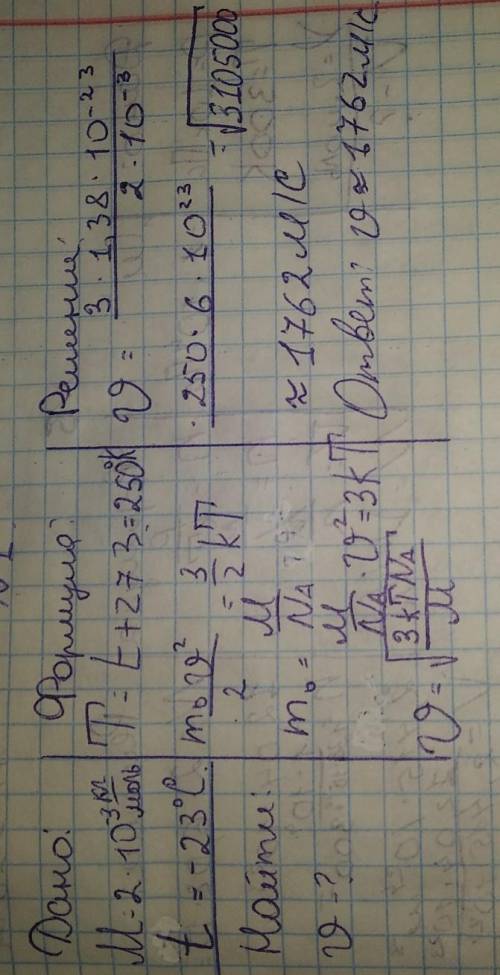 Дано:
M = 2 · 10⁻³ кг/моль
t = -23°C.
Найти:
υ - ?
Формула:
T = t + 273 = 250°K
m₀υ²/2 = 3/2 kT
m₀ = M/Nₐ
M/Nₐ · υ² = 3kT
υ = √(3kTNₐ/M)
Решений,
υ = 3 · 1,38 · 10⁻²³ / 2 · 10⁻³
· 250 · 6 · 10²³ = √3105000
≈ 1762 м/с
Ответ: υ ≈ 1762 м/с